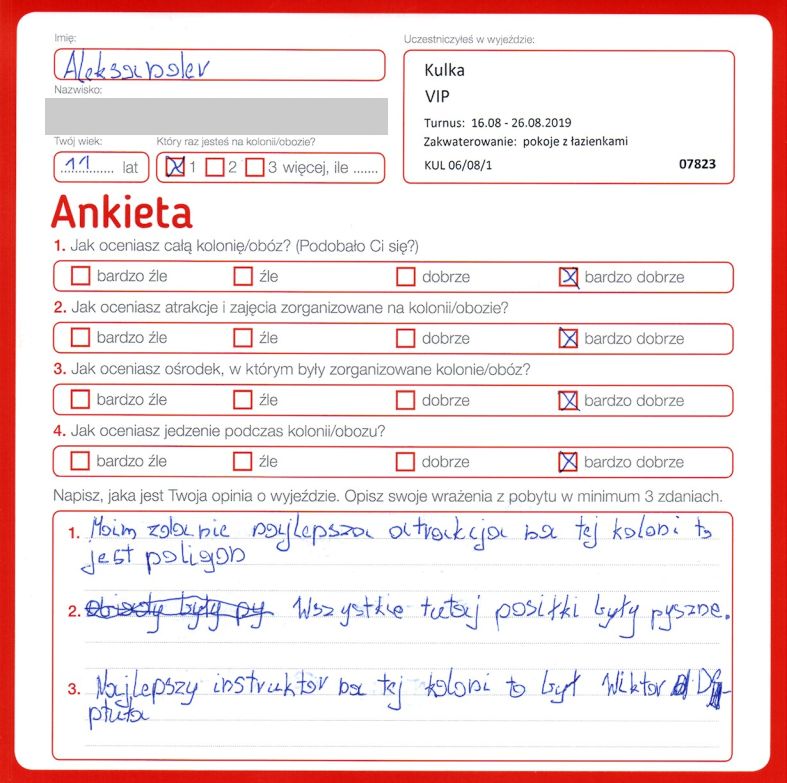 Imię:
Aleksander
Nazwisko:
Twój wiek:
11 lat
Który raz jesteś na kolonii/obozie?
1 2 3 więcej, ile .......
Uczestniczyłeś w wyjeździe:
Kulka
VIP
Turnus: 16.08 - 26.08.2019
Zakwaterowanie: pokoje z łazienkami
KUL 06/08/1 07823
Ankieta
1. Jak oceniasz całą kolonię/obóz? (Podobało Ci się?)
bardzo źle źle dobrze bardzo dobrze
2. Jak oceniasz atrakcje i zajęcia zorganizowane na kolonii/obozie?
bardzo źle źle dobrze bardzo dobrze
3. Jak oceniasz ośrodek, w którym były zorganizowane kolonie/obóz?
bardzo źle źle dobrze bardzo dobrze
4. Jak oceniasz jedzenie podczas kolonii/obozu?
bardzo źle źle dobrze bardzo dobrze
Napisz, jaka jest Twoja opinia o wyjeździe. Opisz swoje wrażenia z pobytu w minimum 3 zdaniach.
1. Moim zdanie najlepsza atrakcja na tej koloni to
jest poligon
2. obiady były py Wszystkie tutaj posiłki były pyszne.
3. Najlepszy instruktor na tej koloni to był Wiktor